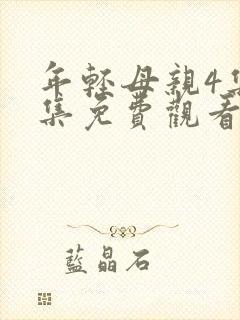 年輕母親4集
集免費觀看
藍晶石